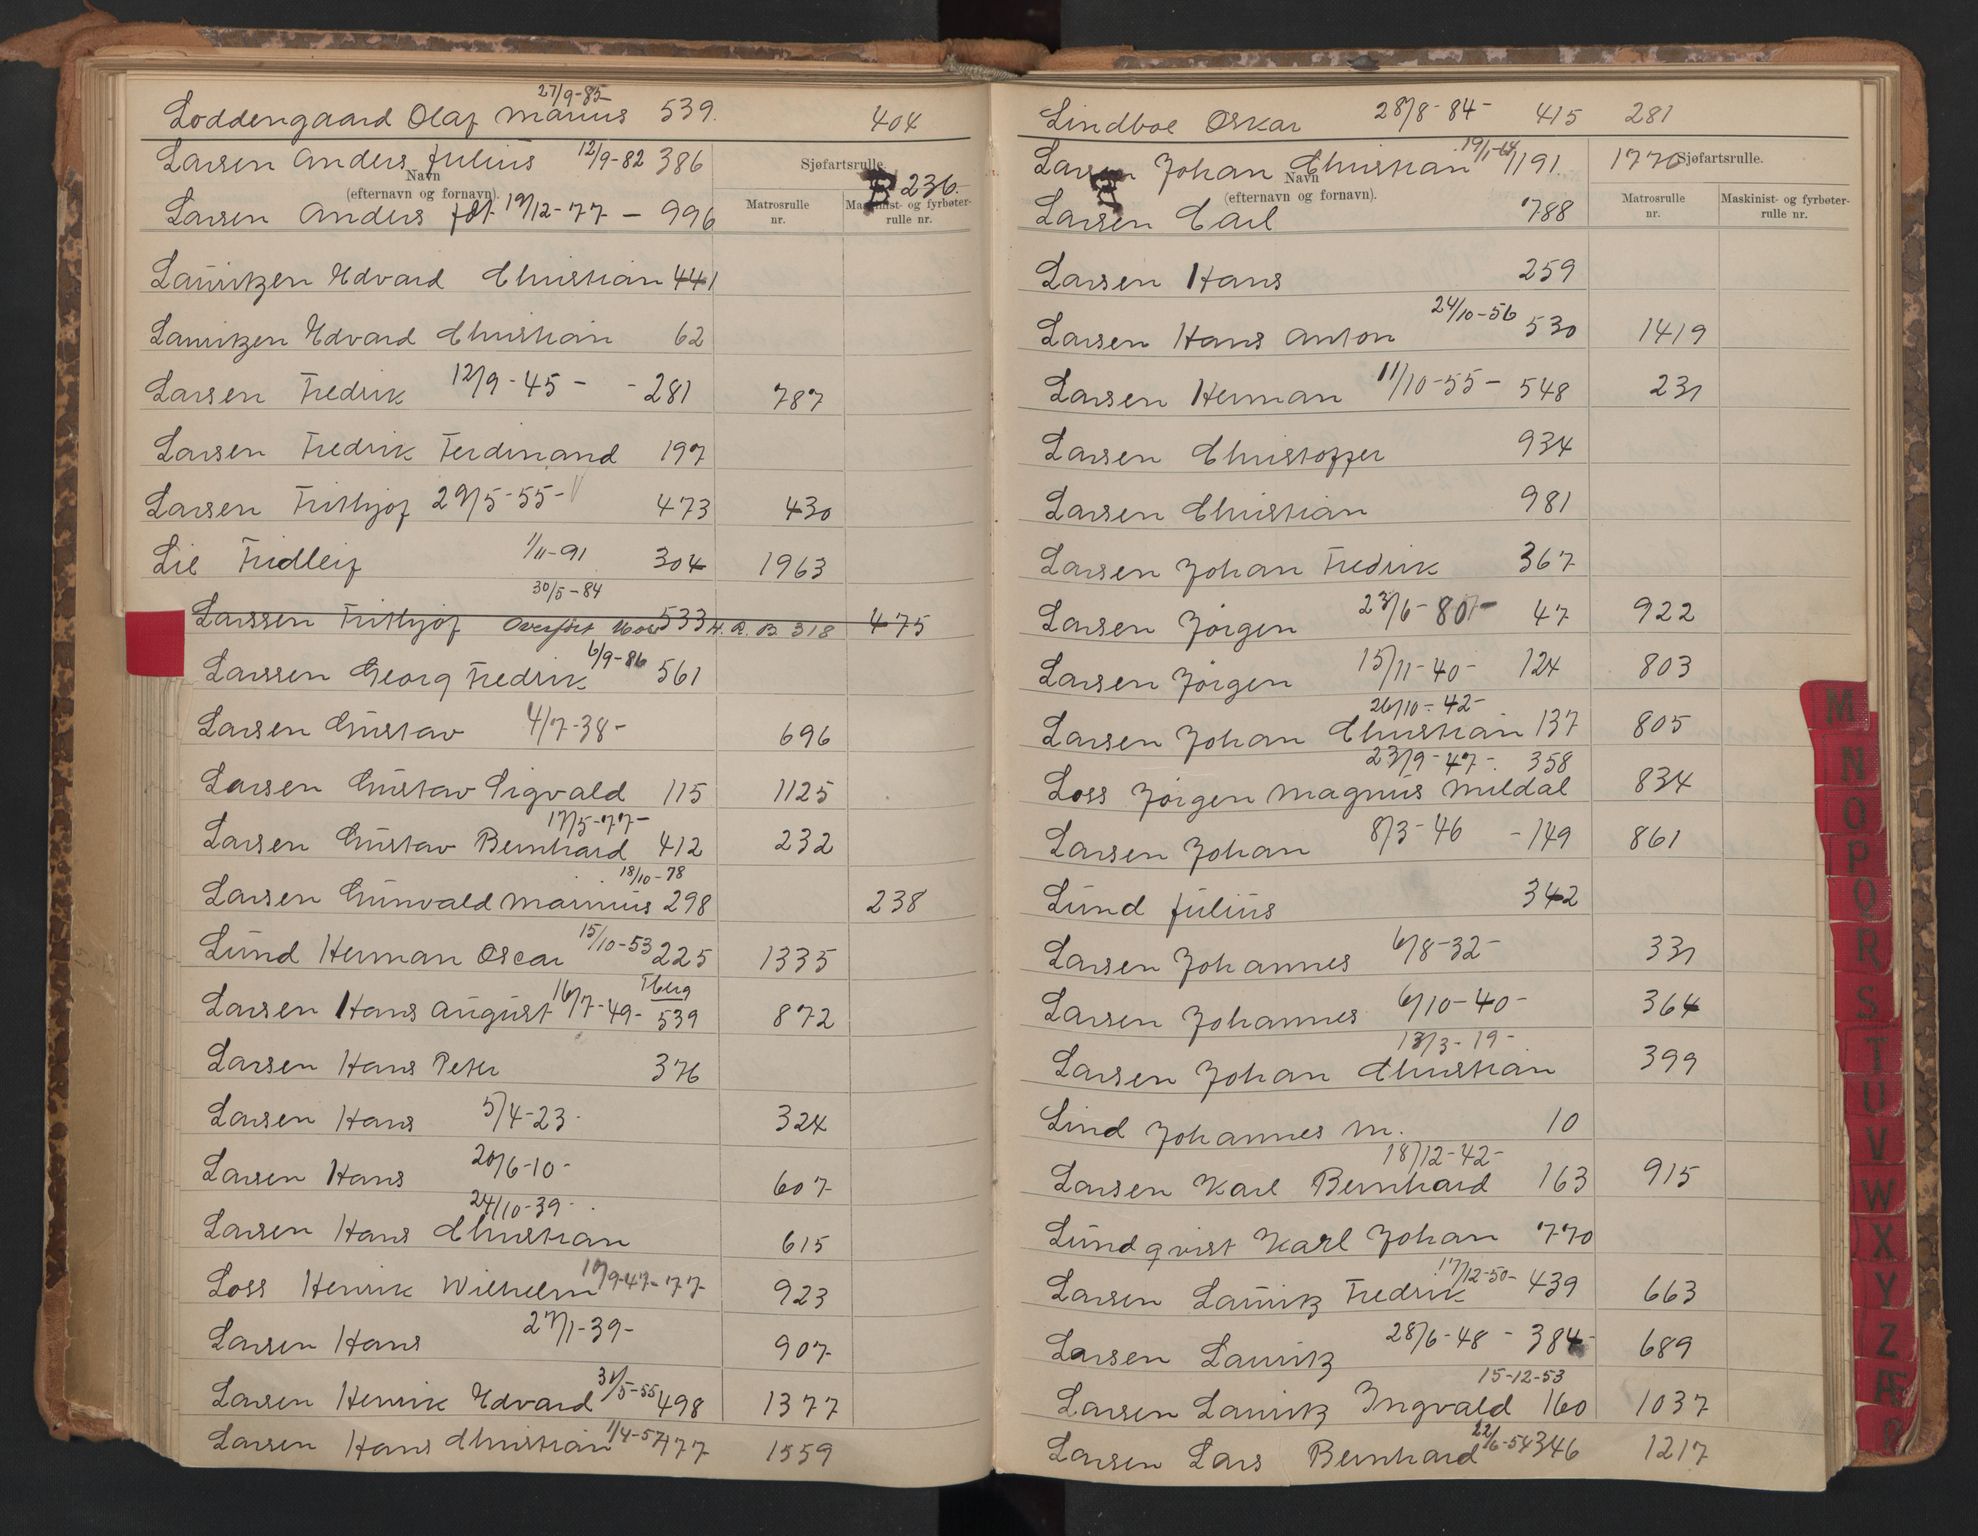 Loddengaard Olaf Marius 27/9-85 539. 404
Larsen Anders Julius 12/9-82 386
Navn
(efternavn og fornavn).
Sjøfartsrulle.
Matrosrulle
nr.
Maskinist- og fyrbøter-
rulle nr.
B 236.
Larsen Anders født 19/12-77 - 996
Lauritzen Edvard Christian 441
Lauritzen Edvard Christian 62
Larsen Fredrik 12/9-45 - - 281 787
Larsen Fredrik Ferdinand 197
Larsen Frithjof 29/5-55- 473 430
Lie Fridleif 1/11-91 304 1963
Larssen Frithjof 30/5-84 Overført Hov 533 H. R. B. 318 475
Larssen Georg Fredrik 6/9-86 561
Larsen Gustav 4/7-38- 696
Larsen Gustav Sigvald 115 1125
Larsen Gustav Bernhard 17/5-77- 412 232
Larsen Gunvald Marinius 18/10-78 298 238
Lund Herman Oscar 15/10-53 225 1335
Larsen Hans August 16/7-49- Tberg 539 872
Larsen Hans Peter 376
Larsen Hans 5/4-23- 324
Larsen Hans 20/6-10- 607
Larsen Hans Christian 24/10-39- 615
Loss Henrik Wilhelm 19/9-47- 77 923
Larsen Hans 27/1-39- 907
Larsen Henrik Edvard 31/5-55 498 1377
Larsen Hans Christian 1/4-57 477 1559
Lindboe Oskar 28/8-84- 415 281
Larsen Johan Christian 19/1-64 1191. 1770
Navn
(efternavn og fornavn).
Sjøfartsrulle.
Matrosrulle
nr.
Maskinist- og fyrbøter-
rulle nr.
Larsen Carl 788
Larsen Hans 259
Larsen Hans Anton 24/10-56 530 1419
Larsen Herman 11/10-55- 548 231
Larsen Christoffer 934
Larsen Christian 981
Larsen Johan Fredrik 367
Larsen Jørgen 23/6-80- 47 922
Larsen Jørgen 15/11-40- 124 803
Larsen Johan Christian 26/10-42- 137 805
Loss Jørgen Magnus Mildal 23/9-47-. 358 834
Larsen Johan 8/3-46 - 149 861
Lund Julius 342
Larsen Johannes 6/8-32- 331
Larsen Johannes 6/10-40- 364
Larsen Johan Christian 13/3-19- 399
Lind Johannes M. 10
Larsen Karl Bernhard 18/12-42- 163 915
Lundqvist Karl Johan 770
Larsen Lauritz Fredrik 17/12-50- 439 663
Larsen Lauritz 28/6-48 - 384- 689
Larsen Lauritz Ingvald 15-12-53 160 1037
Larsen Lars Bernhard 22/6-54 346 1217
M
N
O
P
Q
R
S
T
U
V
W
X
Y
Z
Æ